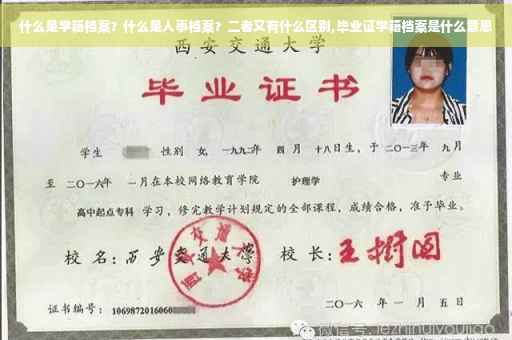 什么是学籍档案？什么是人事档案？二者又有什么区别,毕业证学籍档案是什么意思
西安交通大学
毕业证书
学生 性别 女,一九九二年 四月 十八日生,于二〇一三年 九月
至 二〇一六年 一月在本校网络教育学院 护理学 专业
高中起点专科 学习，修完教学计划规定的全部课程，成绩合格，准予毕业。
校名：西安交通大学 校长：王树国
西安交通大学
证书编号：1069872016060 二〇一六年一月五日
微信号: jiezhinuiyoujiao